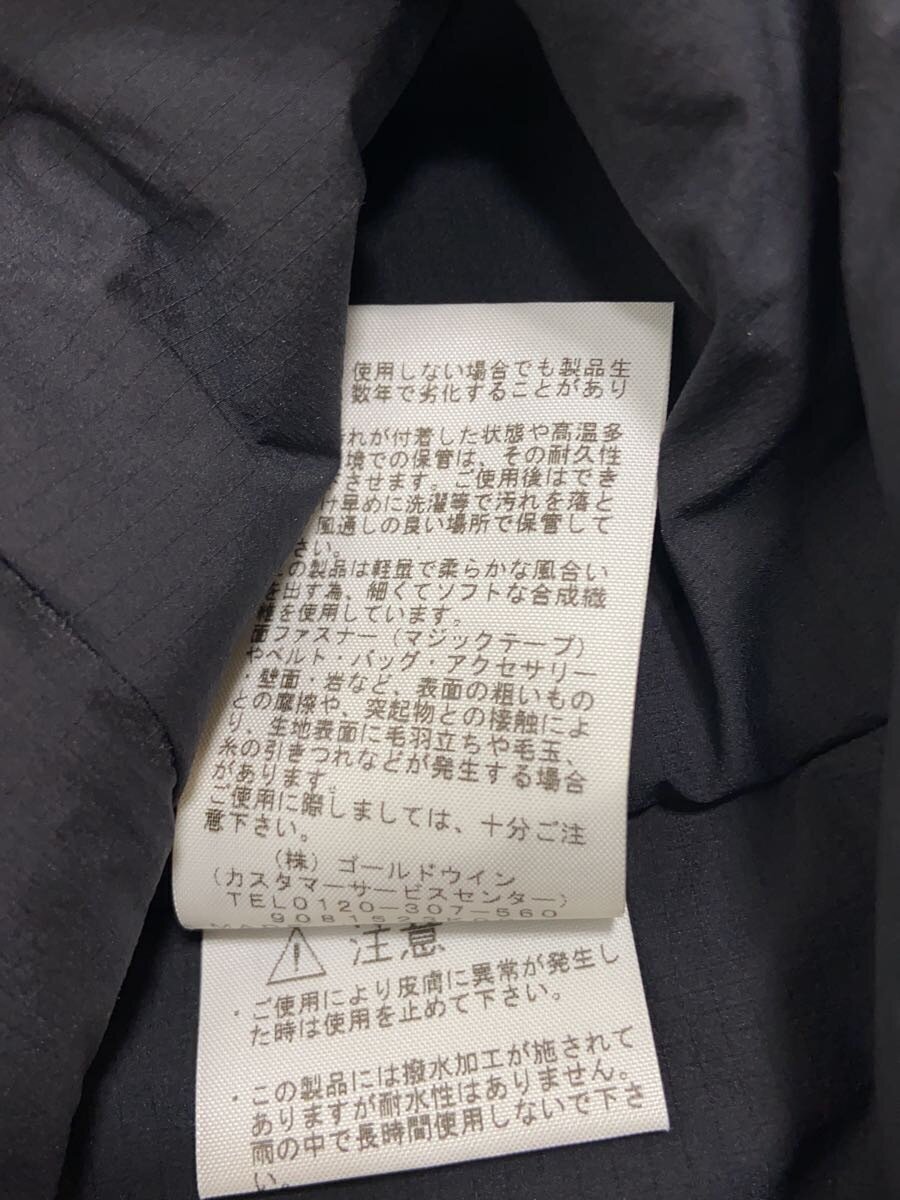 使用しない場合でも製品生
数年で劣化することがあり
れが付着した状態や高温多
境での保管は、その耐久性
させます。ご使用後はでき
け早めに洗濯等で汚れを落と
風通しの良い場所で保管して
さい。
この製品は軽量で柔らかな風合い
を出す為、細くてソフトな合成繊
維を使用しています。
面ファスナー(マジックテープ)
やベルト・バッグ・アクセサリー
・壁面・岩など、表面の粗いもの
との摩擦や、突起物との接触によ
り、生地表面に毛羽立ちや毛玉、
糸の引きつれなどが発生する場合
があります。
ご使用に際しましては、十分ご注
意下さい。
(株)ゴールドウイン
(カスタマーサービスセンター)
TEL0120-307-560
注意
・ご使用により皮膚に異常が発生し
た時は使用を止めて下さい。
・この製品には撥水加工が施されて
ありますが耐水性はありません。
雨の中で長時間使用しないで下さ
い。